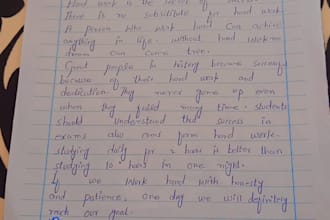 Hard work is the secret of success.
There is no substitute for hard work
A person who work hard can achive
anything in life. without hard work no
dream can come true.
Great people in history became successful
because of their hard work and
dedication. They never gave up even
when they failed many time. students
should understand that success in
exams also coms form hard work.
studying daily for 2 hours is better than
studying 10 hours in one night.
If we work hard with honesty
and patience, one day we will definitely
reach our goal.